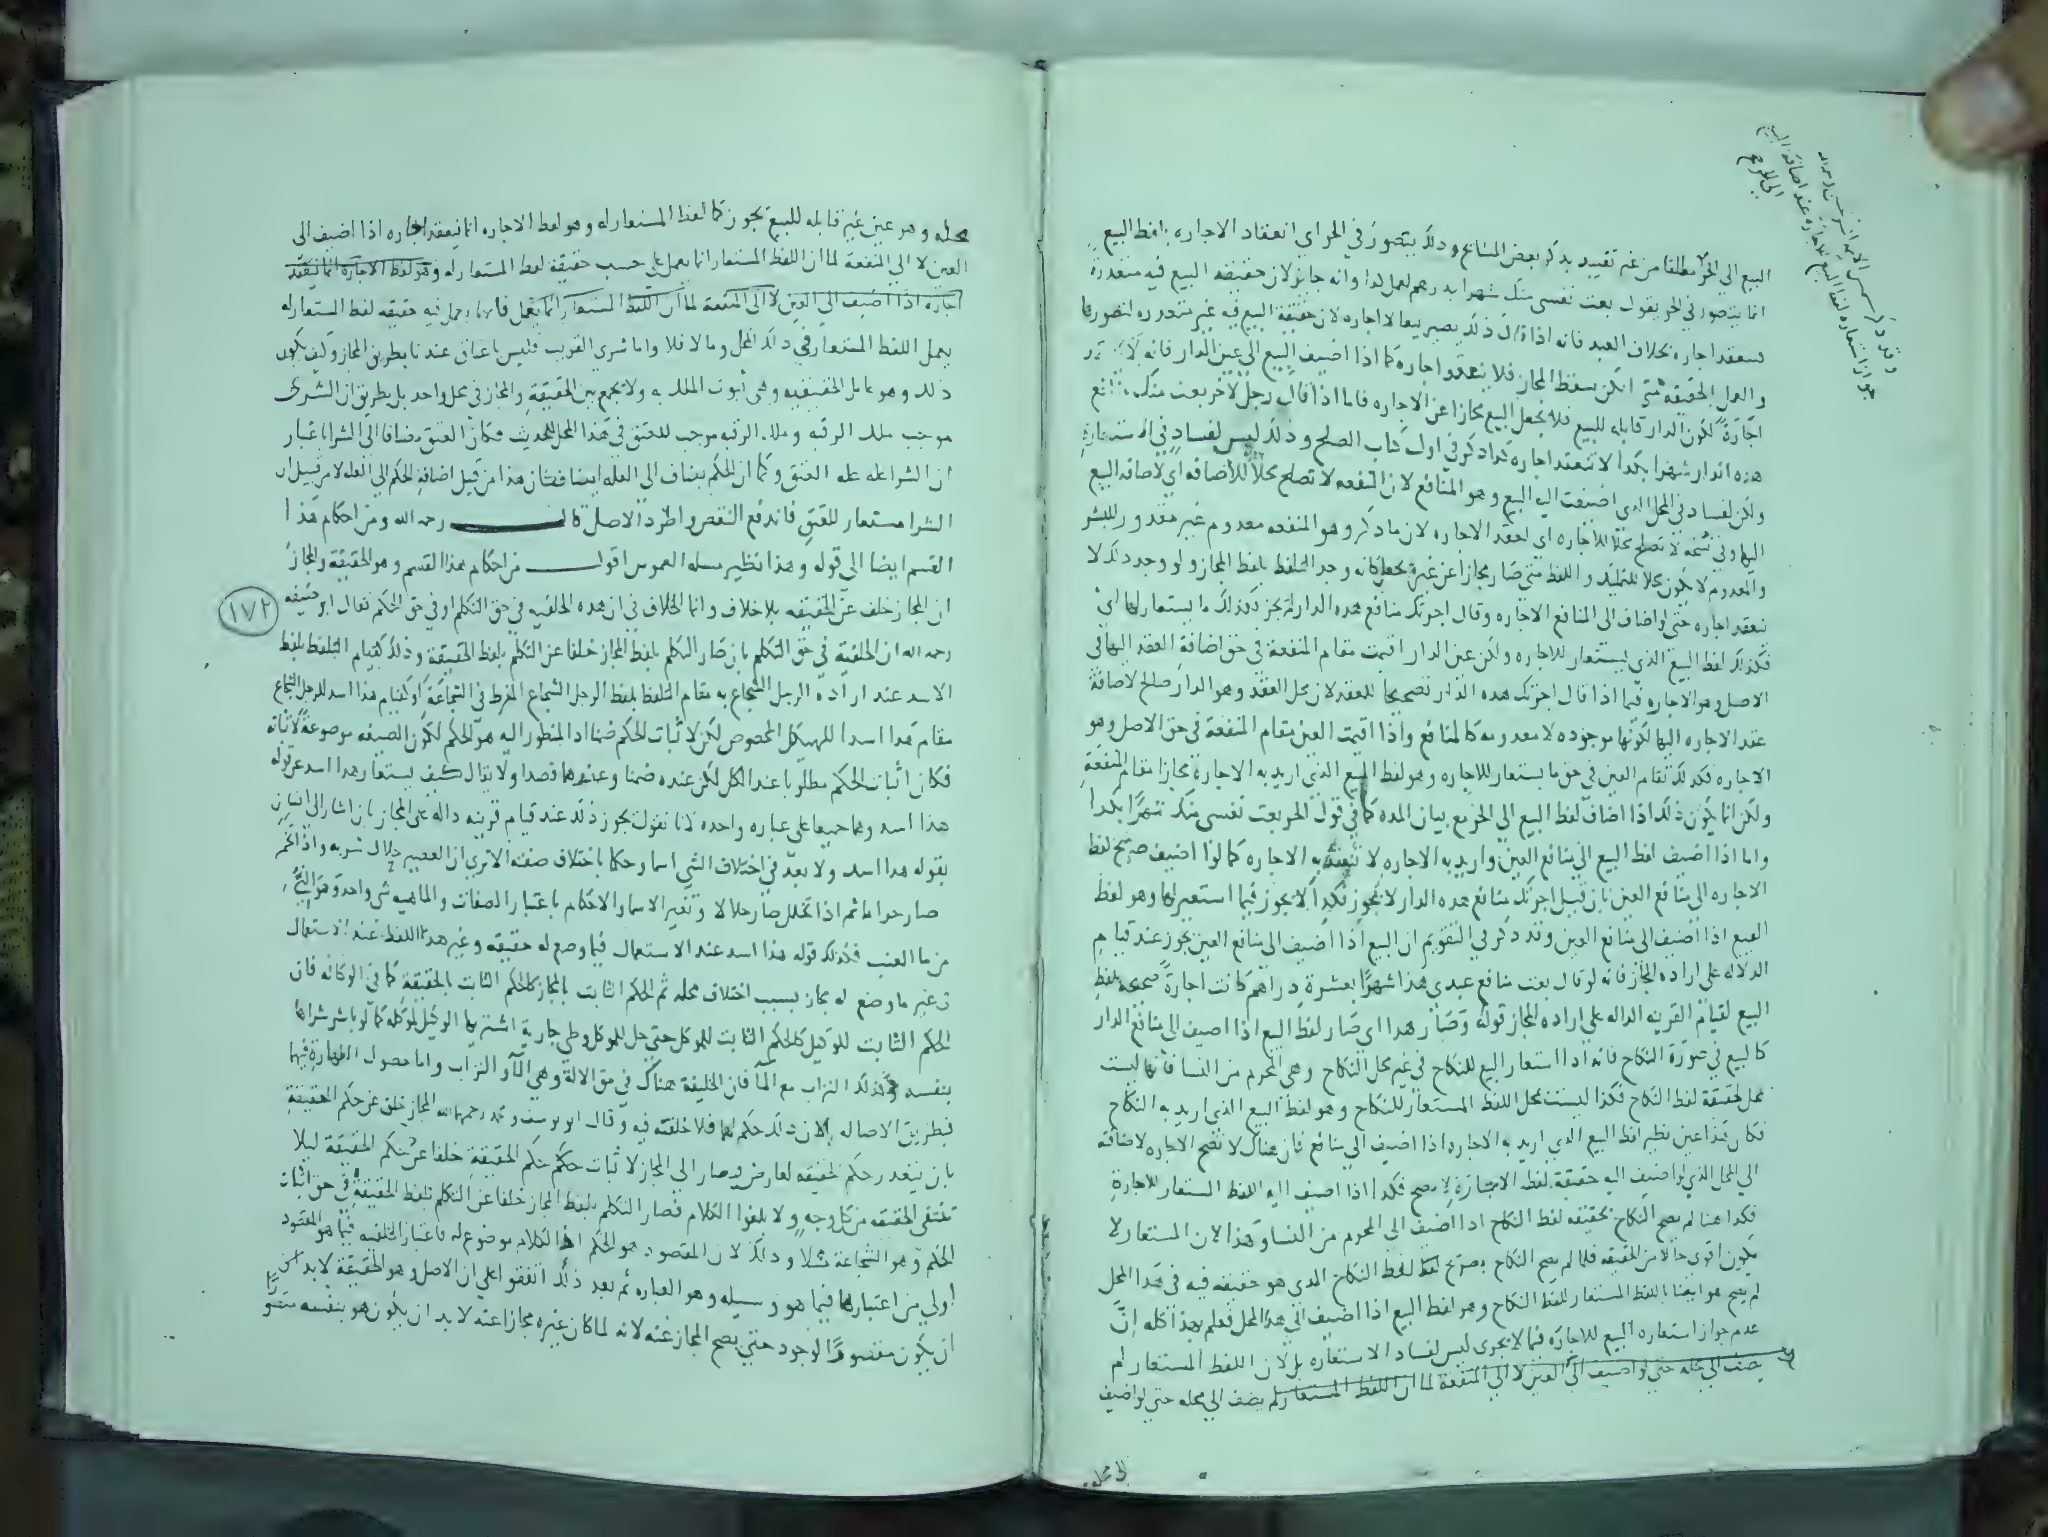 وقد ذكر شمس الأئمة السرخسي رحمه الله
جواز استعارة لفظ البيع للاجارة عند اضافة البيع
الى الحر صح
البيع الى الحر مطلقا من غير تقييد بذكر بعض المشائخ وذلك يتصور في الحر اي انعقاد الاجاره بلفظ البيع
انما يتصور في الحر بقول بعت نفسى منك شهرا بدرهم لعمل كذا وانه جايز لان حقيقة البيع فيه متعذرة
فينعقد اجاره بخلاف العبد فانه اذا قال ذلك يصير بيعا لا اجاره لان حقيقة البيع فيه غير متعذره لتصورها
والعمل بالحقيقة متى امكن سقط المجاز فلا ينعقد اجاره كما اذا اضيف البيع الى عين الدار فانه لا
اجارة لكون الدار قابله للبيع فلا يجعل البيع مجازا عن الاجاره فاما اذا قال رجل لاخر بعت منك منافع
هذه الدار شهرا بكذا لا تنعقد اجاره كذا ذكر في اول كتاب الصلح وذلك ليس لفساد في الاستعارة
ولكن لفساد في المحل الذى اضيفت اليه البيع وهو المنافع لان المنفعه لا تصلح محلا للاضافه اي لاضافه البيع
اليها وفي نسخه لا تصلح محلا للاجاره اي لعقد الاجاره لان ما ذكر وهو المنفعه معدوم غير مقدور للبشر
والمعدوم لا يكون محلا للتمليك واللفظ متى صار مجازا عن غيره يجعل كانه وجد التلفظ بلفظ المجاز ولو وجد ذلك لا
ينعقد اجاره حتى لو اضاف الى المنافع الاجاره وقال اجرتك منافع هذه الدار لم يجز فكذلك ما يستعار لها اي
فكذلك لفظ البيع الذي يستعار للاجاره ولكن عين الدار اقيمت مقام المنفعة في حق اضافة العقد اليها في
الاصل وهو الاجاره فيما اذا قال اجرتك هذه الدار تصحيحا للعقد لان محل العقد وهو الدار صالح لاضافة
عقد الاجاره اليها لكونها موجوده لا معدومة كالمنافع واذا اقيمت العين مقام المنفعة في حق الاصل وهو
الاجاره فكذلك تقام العين في حق ما يستعار للاجاره وهو لفظ البيع الذي اريد به الاجارة مجازا مقام المنفعة
ولكن انما يكون ذلك اذا اضاف لفظ البيع الى الحر مع بيان المده كما في قول الحر بعت نفسى منك شهرا بكذا
واما اذا اضيف لفظ البيع الى منافع العين واريد به الاجاره لا تنعقد به الاجاره كما لو اضيف صريح لفظ
الاجاره الى منافع العين بان قيل اجرتك منافع هذه الدار لا يجوز فكذا لا يجوز فيما استعير لها وهو لفظ
البيع اذا اضيف الى منافع العين وقد ذكر في التقويم ان البيع اذا اضيف الى منافع العين يجوز عند قيام
الدلاله على اراده المجاز فانه لو قال بعت منافع عبدي هذا شهرا بعشرة دراهم كانت اجارة صحيحه بلفظ
البيع لقيام القرينه الداله على اراده المجاز قوله وصار هذا اي صار لفظ البيع اذا اضيف الى منافع الدار
كالبيع في صورة النكاح فانه اذا استعار البيع للنكاح في غير محل النكاح وهى المحرم من النسا فانها ليست
محل لحقيقة لفظ النكاح فكذا ليست محل اللفظ المستعار للنكاح وهو لفظ البيع الذي اريد به النكاح
فكان هذا عين نظير لفظ البيع الذي اريد به الاجاره اذا اضيف الى منافع فان هناك لا تصح الاجاره لاضافته
الى المحل الذي لو اضيف اليه حقيقة لفظ الاجارة لا يصح فكذا اذا اضيف اليه اللفظ المستعار للاجارة
فكذا هنا لم يصح النكاح بحقيقه لفظ النكاح اذا اضيف الى المحرم من النسا وهذا لان المستعار لا
يكون اقوى حالا من الحقيقه فلما لم يصح النكاح بصريح لفظ النكاح الذي هو حقيقه فيه في هذا المحل
لم يصح هو ايضا باللفظ المستعار للفظ النكاح وهو لفظ البيع اذا اضيف الى هذا المحل فعلم بهذا كله انّ
عدم جواز استعاره البيع للاجاره فيما لا يجرى ليس لفساد الاستعاره بل لان اللفظ المستعار لم
يضف الى محله حتى لو اضيف الى العين لا الى المنفعة لما ان اللفظ المستعار لم يضف الى محله حتى لو اضيف
الى محله
محله وهو عين غير قابله للبيع يجوز كما لفظ المستعار له وهو لفظ الاجاره انما ينعقد اجاره اذا اضيف الى
العين لا الى المنفعة لما ان اللفظ المستعار انما يعمل على حسب حقيقة لفظ المستعار له وهو لفظ الاجارة انما ينعقد
اجارة اذا اضيف الى العين لا الى المنفعة لما ان اللفظ المستعار انما يعمل فانما يعمل فيه حقيقه لفظ المستعار له
يعمل اللفظ المستعار في ذلك المحل وما لا فلا واما شرى القريب فليس باعتاق عندنا بطريق المجاز وكيف يكون
ذلك وهو عامل بحقيقته وهى ثبوت الملك به ولا يجمع بين الحقيقة والمجاز في محل واحد بل بطريق ان الشرى
موجب ملك الرقبه وملك الرقبه موجب للعتق في هذا المحل للحديث فكان العتق مضافا الى الشرا باعتبار
ان الشرا علة عله العتق وكما ان الحكم يضاف الى العله ايضا فكان هذا من قبيل اضافة الحكم الى العله لا من قبيل ان
الشرا مستعار للعتق فاندفع النقض واطرد الاصل قال رحمه الله ومن احكام هذا
القسم ايضا الى قوله وهذا نظير مسله الغموس اقول من احكام هذا القسم وهو الحقيقة والمجاز
ان المجاز خلف عن الحقيقه بلا خلاف وانما الخلاف في ان هذه الخلفيه في حق التكلم او في حق الحكم فقال ابو حنيفه
رحمه الله ان الخلفية في حق التكلم بان صار التكلم بلفظ المجاز خلفا عن التكلم بلفظ الحقيقة وذلك كقيام التلفظ بلفظ
الاسد عند ارادة الرجل الشجاع به مقام التلفظ بلفظ الرجل الشجاع المفرط في الشجاعة او كقيام هذا اسد للرجل الشجاع
مقام هذا اسد للهيكل المخصوص لكن لاثبات الحكم ضمنا اذ المنظور اليه هو الحكم لكون الصيغه موضوعة لاثباته
فكان اثبات الحكم مطلوبا عند الكل لكن عنده ضمنا وعندهما قصدا ولا يقال كيف يستعار هذا اسد عن قوله
هذا اسد وهما جميعا على عباره واحده لانا نقول يجوز ذلك عند قيام قرينه داله على المجاز بان اشار الى انسان
بقوله هذا اسد ولا بعد في اختلاف الشي اسما وحكما باختلاف صفته الا ترى ان العصير حلال شربه واذا تخمر
صار حراما ثم اذا تخلل صار حلالا وتغير الاسماء والاحكام باعتبار الصفات والماهيه شى واحد وهو التى
من ما العنب فكذلك قوله هذا اسد عند الاستعمال فيما وضع له حقيقه وغير هذا اللفظ عند الاستعمال
فى غير ما وضع له مجاز بسبب اختلاف محله ثم الحكم الثابت بالمجاز كالحكم الثابت بالحقيقة كما في الوكاله فان
الحكم الثابت للوكيل كالحكم الثابت للموكل حتى حل للموكل وطى جارية اشتريها الوكيل لموكله كما لو باشر شراها
بنفسه وكذلك التراب مع الما فان الخليفة هناك في حق الالة وهى الما والتراب واما حصول الطهارة بهما
فبطريق الاصاله لان ذلك حكم لهما فلا خلفية فيه وقال ابو يوسف ومحمد رحمهما الله المجاز خلف عن حكم الحقيقة
بان ينعقد حكم الحقيقه لعارض وصار الى المجاز لاثبات حكم حكم الحقيقة خلفا عن حكم الحقيقة ليلا
تنتفى الحقيقه من كل وجه ولا يلغوا الكلام فصار التكلم بلفظ المجاز خلفا عن التكلم بلفظ الحقيقة في حق اثبات
الحكم وهو الشجاعة مثلا وذلك لان المقصود هو الحكم اذ الكلام موضوع له فاعتبار الخلفيه فيما هو المقصود
اولى من اعتبارها فيما هو وسيله وهو العباره ثم بعد ذلك اتفقوا على ان الاصل وهو الحقيقة لا بد من
ان يكون متصور الوجود حتى يصح المجاز عنه لانه لما كان غيره مجازا عنه لا بد ان يكون هو بنفسه متصورا
١٧٢